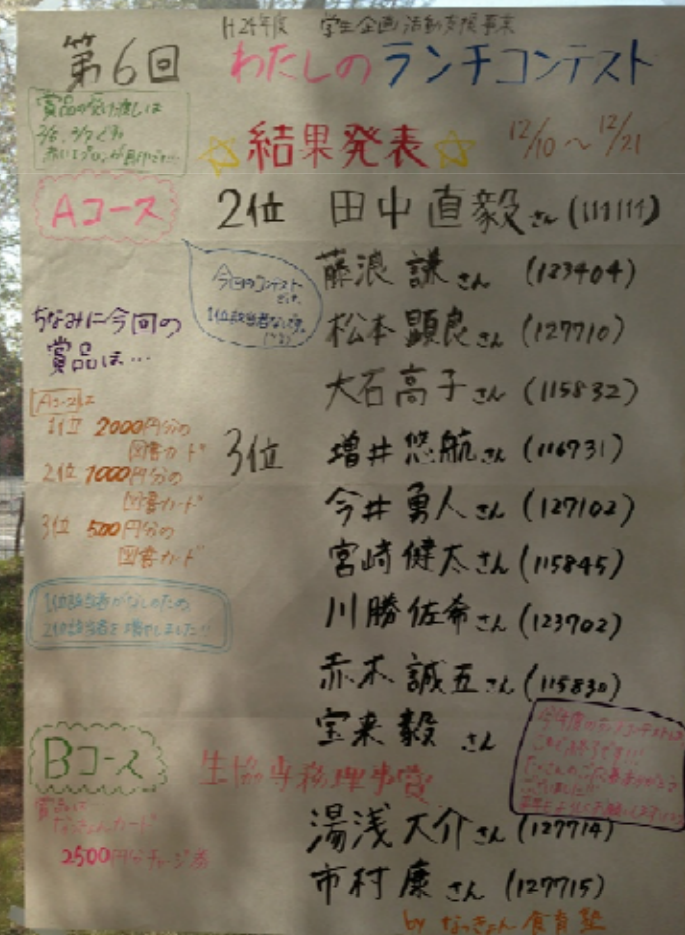 H24年度 学生企画活動支援事業
第6回 わたしのランチコンテスト
賞品の受け渡しは
☆結果発表☆ 12/10～12/21
Aコース
2位 田中直毅さん(111111)
藤浪謙さん (123404)
今回のコンテスト
では、
1位該当者なしです。
松本顕良さん(127710)
大石高子さん(115832)
ちなみに今回の
賞品は…
Aコースは
1位 2000円分の
図書カード
2位 1000円分の
図書カード
3位 500円分の
図書カード
3位 増井悠航さん(116731)
今井勇人さん(127102)
宮崎健太さん(115845)
川勝佐希さん(123702)
赤木誠五さん(115830)
宝来毅 さん
1位該当者がなしのため
2位該当者を増やしました!!
今年度のランチコンテストは
これで終了です!!!
Bコース
生協専務理事賞
賞品は
2500円分チャージ券
湯浅大介さん(127714)
市村康さん(127715)
by なっきょん食育塾